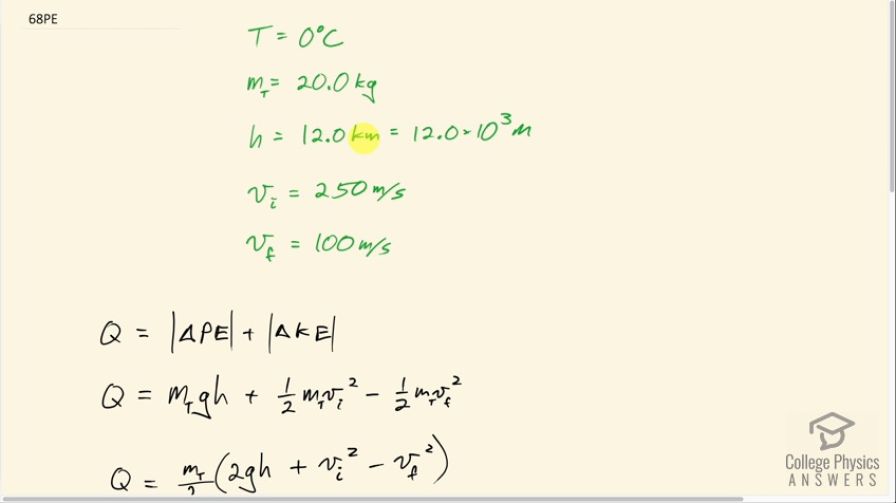 68PE
T = 0°C
m_T = 20.0 kg
h = 12.0 km = 12.0 × 10³ m
v_i = 250 m/s
v_f = 100 m/s
Q = |ΔPE| + |ΔKE|
Q = m_T gh + 1/2 m_T v_i² - 1/2 m_T v_f²
Q = m_T/2 (2gh + v_i² - v_f²)
College Physics
ANSWERS